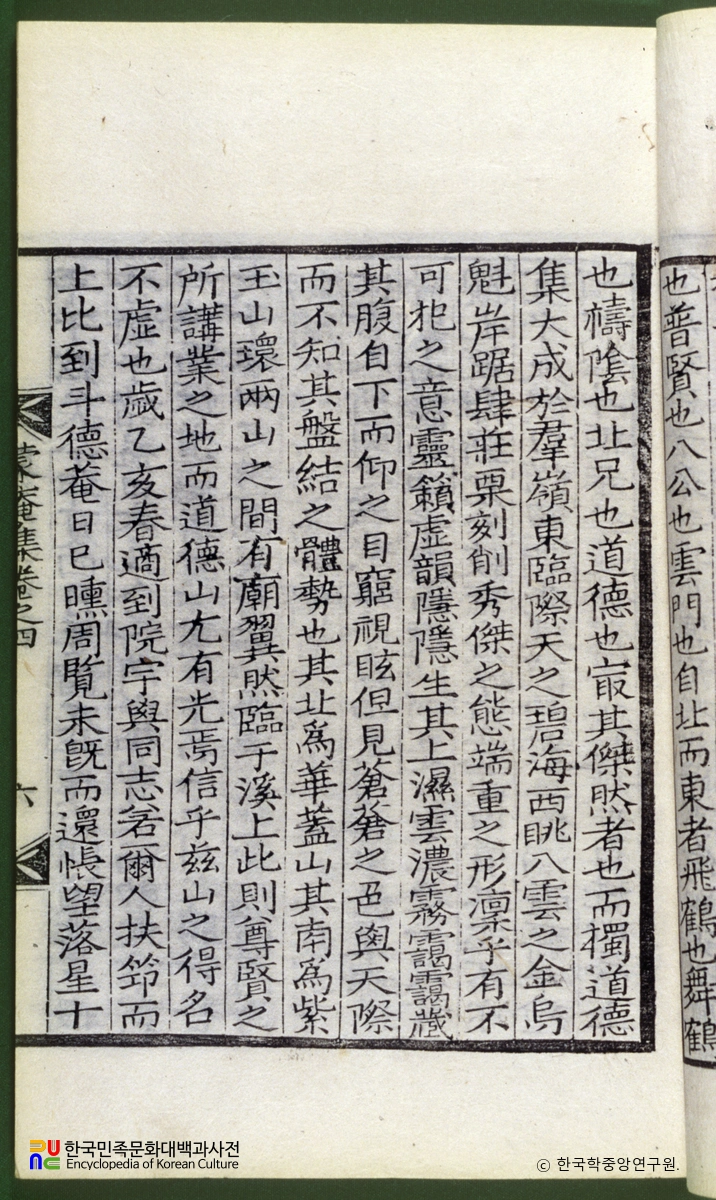 也普賢也八公也雲門也自北而東者飛鶴也舞鶴
也禱陰也北兄也道德也㝡其傑然者也而獨道德
集大成於羣嶺東臨際天之碧海西眺八雲之金烏
魁岸踞肆莊栗刻削秀傑之態端重之形凜乎有不
可犯之意靈籟虛韻隱隱生其上濕雲濃霧靄靄藏
其腹自下而仰之目窮視眩但見蒼蒼之色與天際
而不知其盤結之體勢也其北爲華蓋山其南爲紫
玉山環兩山之間有廟翼然臨于溪上此則尊賢之
所講業之地而道德山尤有光焉信乎玆山之得名
不虛也歲乙亥春適到院宇與同志若爾人扶筇而
上比到斗德菴日已曛周覽未旣而還悵望落星十
蒙庵集卷之四
六
한국민족문화대백과사전
Encyclopedia of Korean Culture
© 한국학중앙연구원.